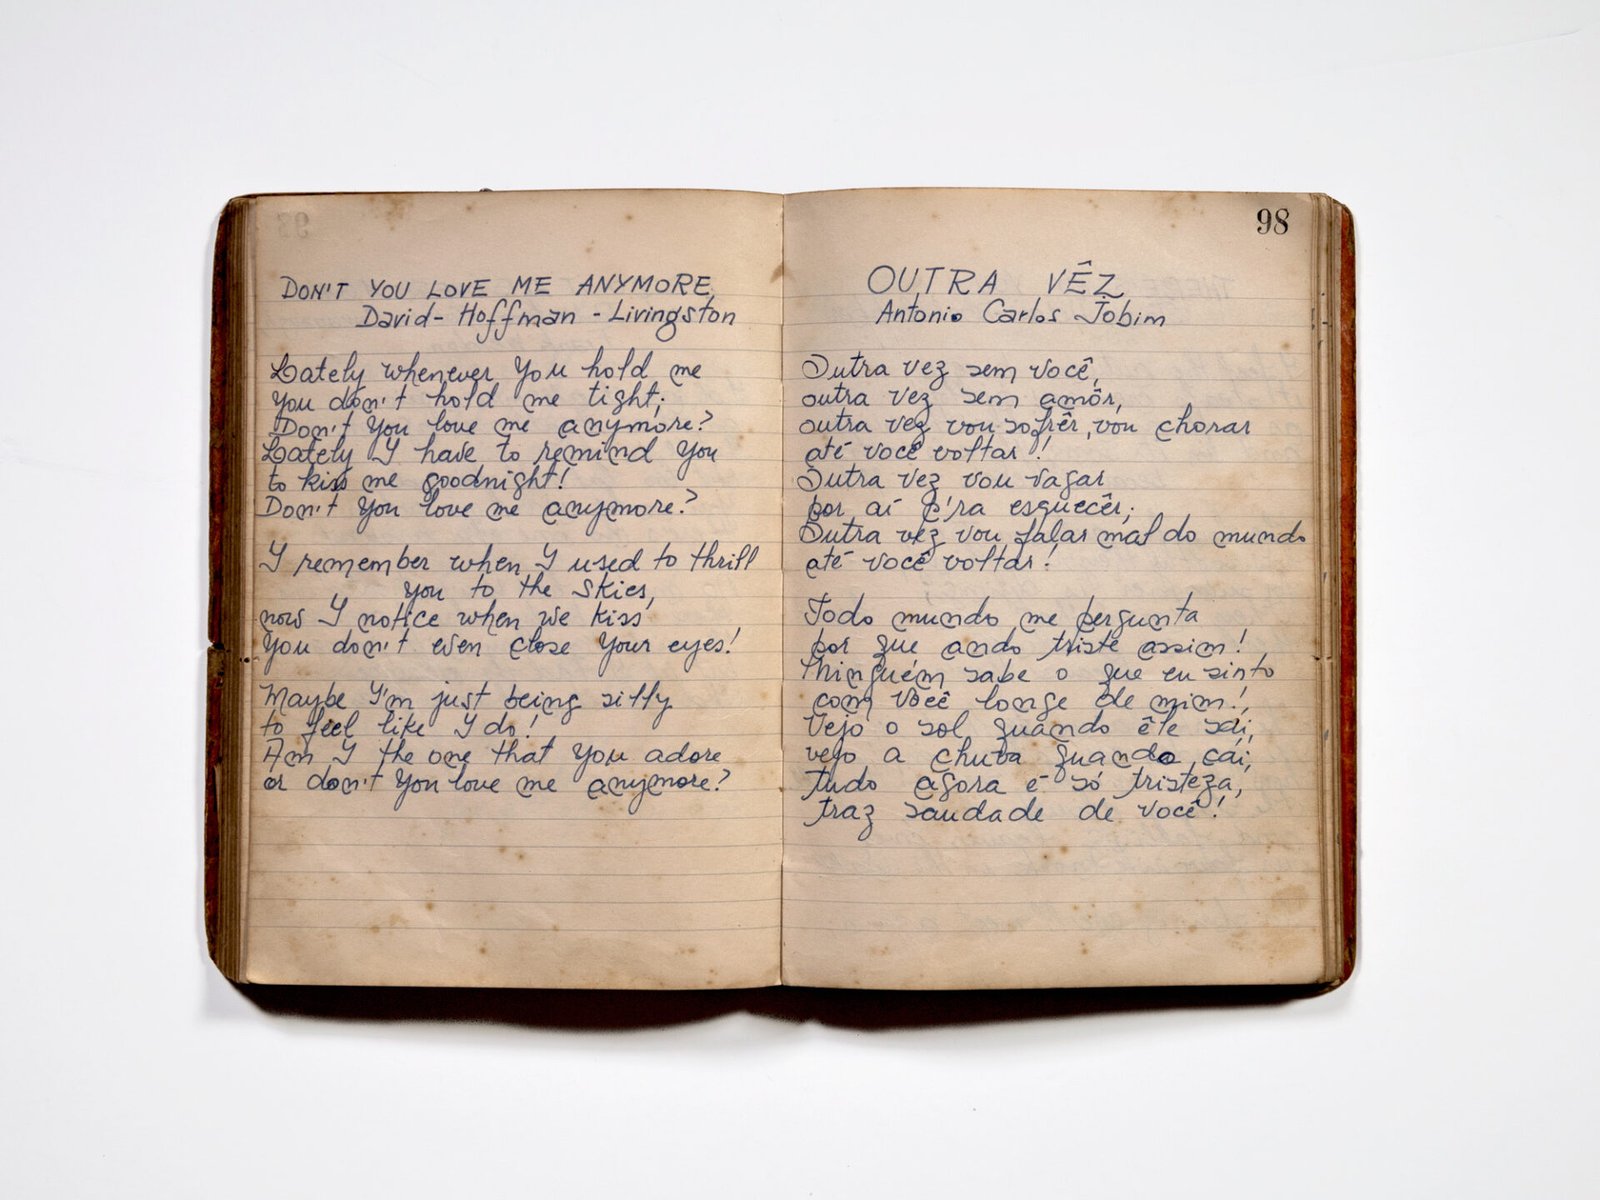 DON'T YOU LOVE ME ANYMORE
David - Hoffman - Livingston
Lately whenever you hold me
you don't hold me tight;
Don't you love me anymore?
Lately I have to remind you
to kiss me goodnight!
Don't you love me anymore?
I remember when I used to thrill
you to the skies,
now I notice when we kiss
you don't even close your eyes!
Maybe I'm just being silly
to feel like I do!
Am I the one that you adore
or don't you love me anymore?
98
OUTRA VÊZ
Antonio Carlos Jobim
Outra vez sem você,
outra vez sem amôr,
outra vez vou sofrêr, vou chorar
até você voltar!
Outra vez vou vagar
por aí p'ra esquecêr;
Outra vez vou falar mal do mundo
até você voltar!
Todo mundo me pergunta
por que ando triste assim!
Ninguém sabe o que eu sinto
com você longe de mim!,
Vejo o sol quando êle sái,
vejo a chuva quando cái,
tudo agora é só tristeza,
traz saudade de você!